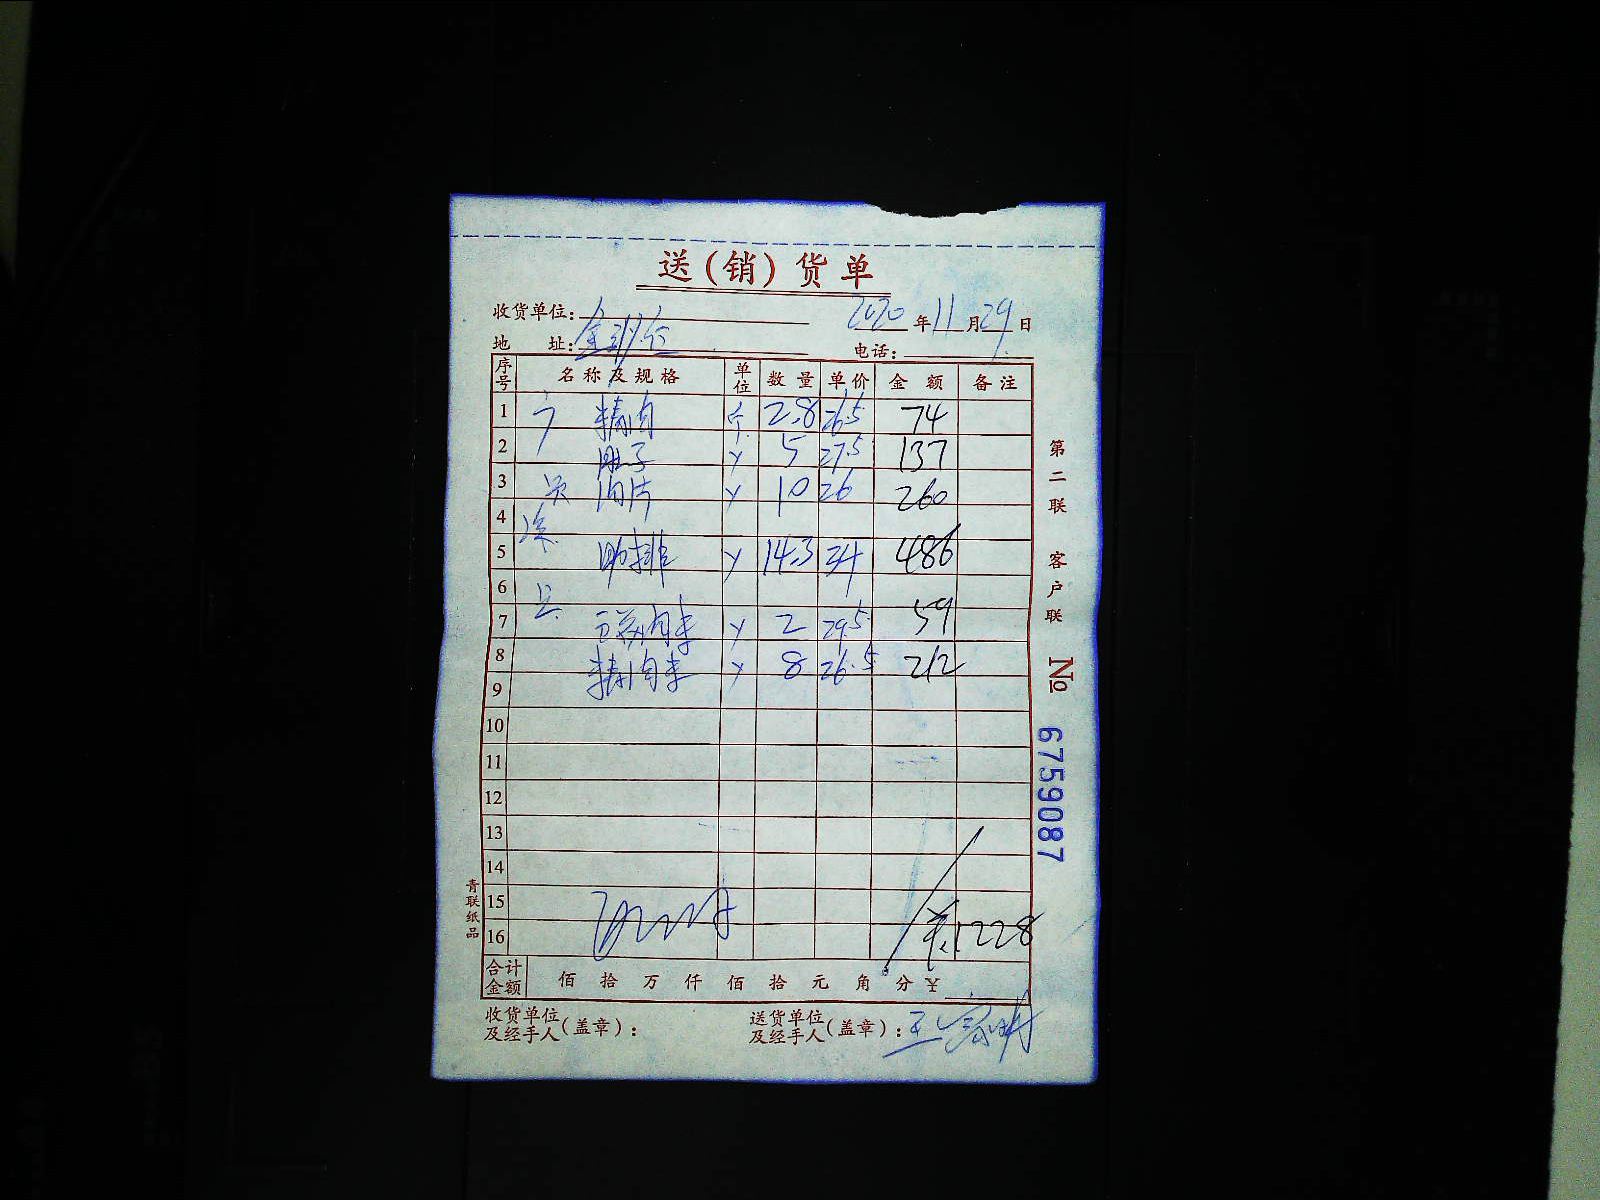 送(销)货单
收货单位: 2020年11月29日
地 址: 电话:
序号 名称及规格 单位 数量 单价 金额 备注
1 精肉 斤 2.8 26.5 74
2 肚子 〃 5 27.5 137
3 肉片 〃 10 26 260
4
5 肋排 〃 14.3 34 486
6
7 肉末 〃 2 29.5 59
8 精肉末 〃 8 26.5 212
9
10
11
12
13
14
15
16 1228
合计金额 佰 拾 万 仟 佰 拾 元 角 分 ¥
收货单位及经手人(盖章): 送货单位及经手人(盖章):
第二联 客户联 № 6759087
青联纸品